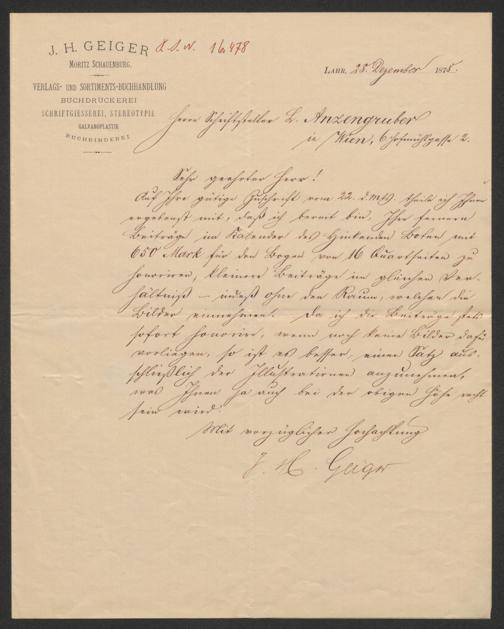 J. H. GEIGER
MORITZ SCHAUENBURG.
VERLAGS- UND SORTIMENTS-BUCHHANDLUNG
BUCHDRUCKEREI
SCHRIFTGIESSEREI, STEREOTYPIE
GALVANOPLASTIK
BUCHBINDEREI.
16.478
LAHR, 28. Dezember 1878.
Herrn Schriftsteller L. Anzengruber
in Wien, 6 Hofmühlgasse 2.
Sehr geehrter Herr!
Auf Ihre gütige Zuschrift vom 22. d. Mts. theile ich Ihnen
ergebenst mit, daß ich bereit bin, Ihre ferneren
Beiträge im Kalender des Hinkenden Boten mit
650 Mark für den Bogen von 16 Quartseiten zu
honoriren, kleinere Beiträge im gleichen Ver-
hältniß – indeß ohne den Raum, welchen die
Bilder einnehmen. Da ich die Beiträge stets
sofort honorire, wenn noch keine Bilder dafür
vorliegen, so ist es besser, einen Satz aus-
schließlich der Illustrationen anzunehmen,
was Ihnen ja auch bei der obigen Höhe recht
sein wird.
Mit vorzüglicher Hochachtung
J. H. Geiger